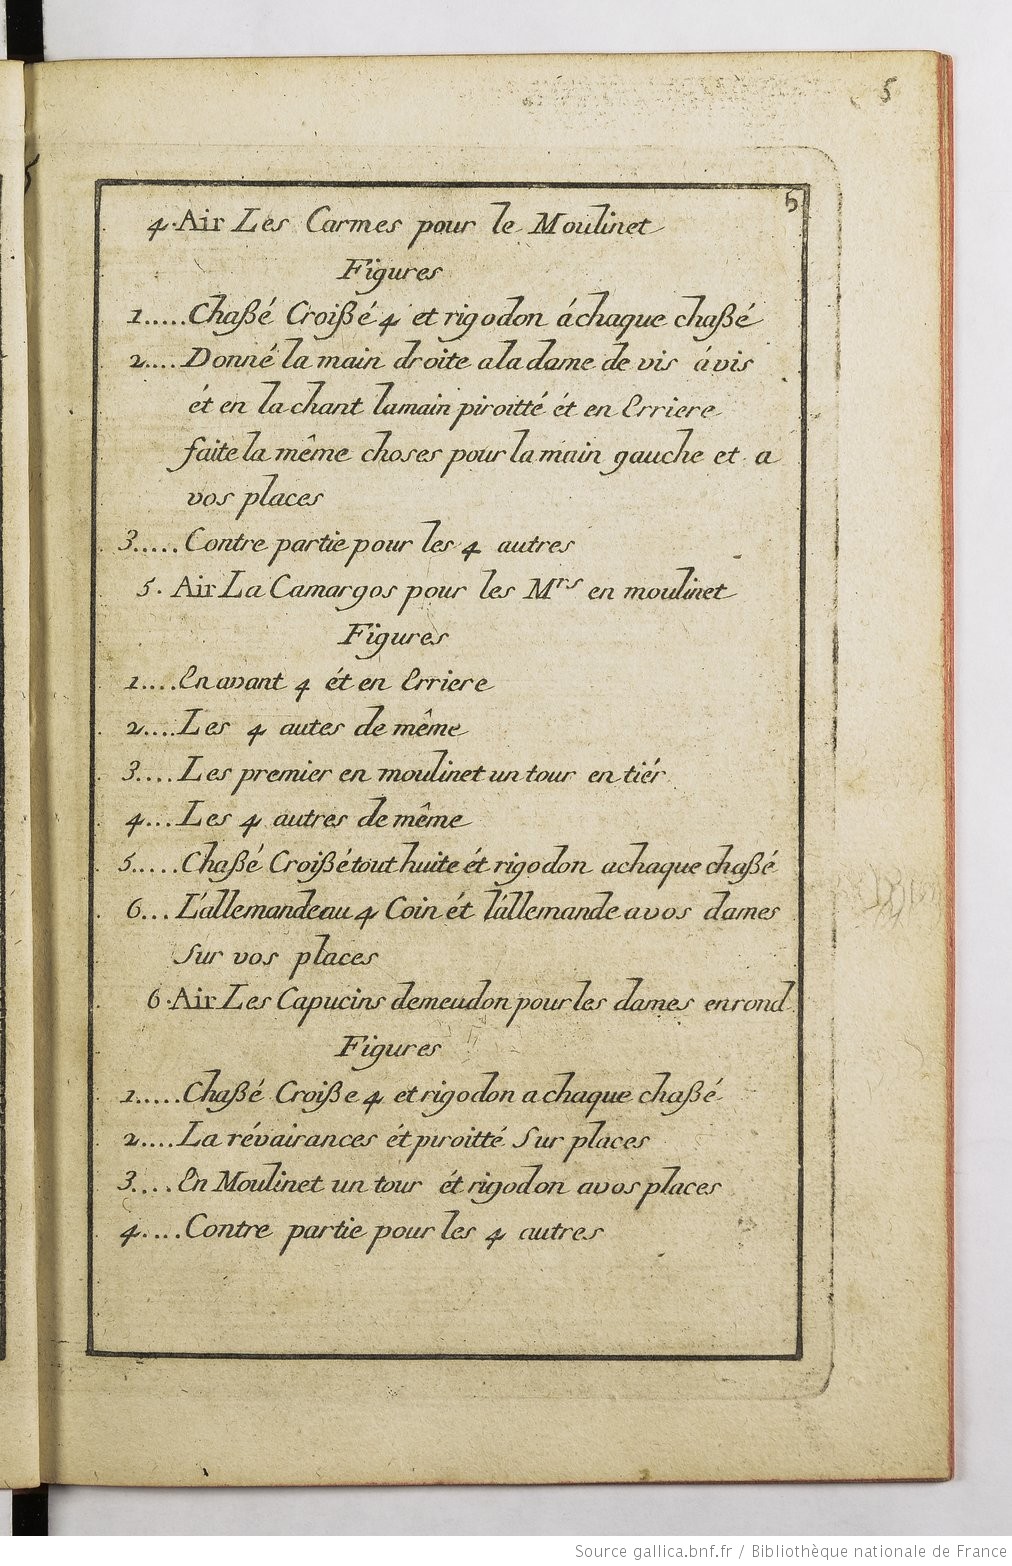 5
5
4. Air Les Carmes pour le Moulinet
Figures
1..... Chaßé Croißé 4 et rigodon á chaque chaßé
2.... Donné la main droite a la dame de vis á vis
ét en la chant la main piroitté ét en Erriere
faite la même choses pour la main gauche et a
vos places
3..... Contre partie pour les 4 autres
5. Air La Camargos pour les Mrs en moulinet
Figures
1.... En avant 4 ét en Erriere
2.... Les 4 autes de même
3.... Les premier en moulinet un tour en tiér
4... Les 4 autres de même
5..... Chaßé Croißé tout huite ét rigodon a chaque chaßé
6... L'allemande au 4 Coin ét l'allemande a vos dames
Sur vos places
6. Air Les Capucins de meudon pour les dames en rond
Figures
1..... Chaßé Croiße 4 et rigodon a chaque chaßé
2.... La révairances ét piroitté Sur places
3.... En Moulinet un tour ét rigodon a vos places
4.... Contre partie pour les 4 autres
Source gallica.bnf.fr / Bibliothèque nationale de France